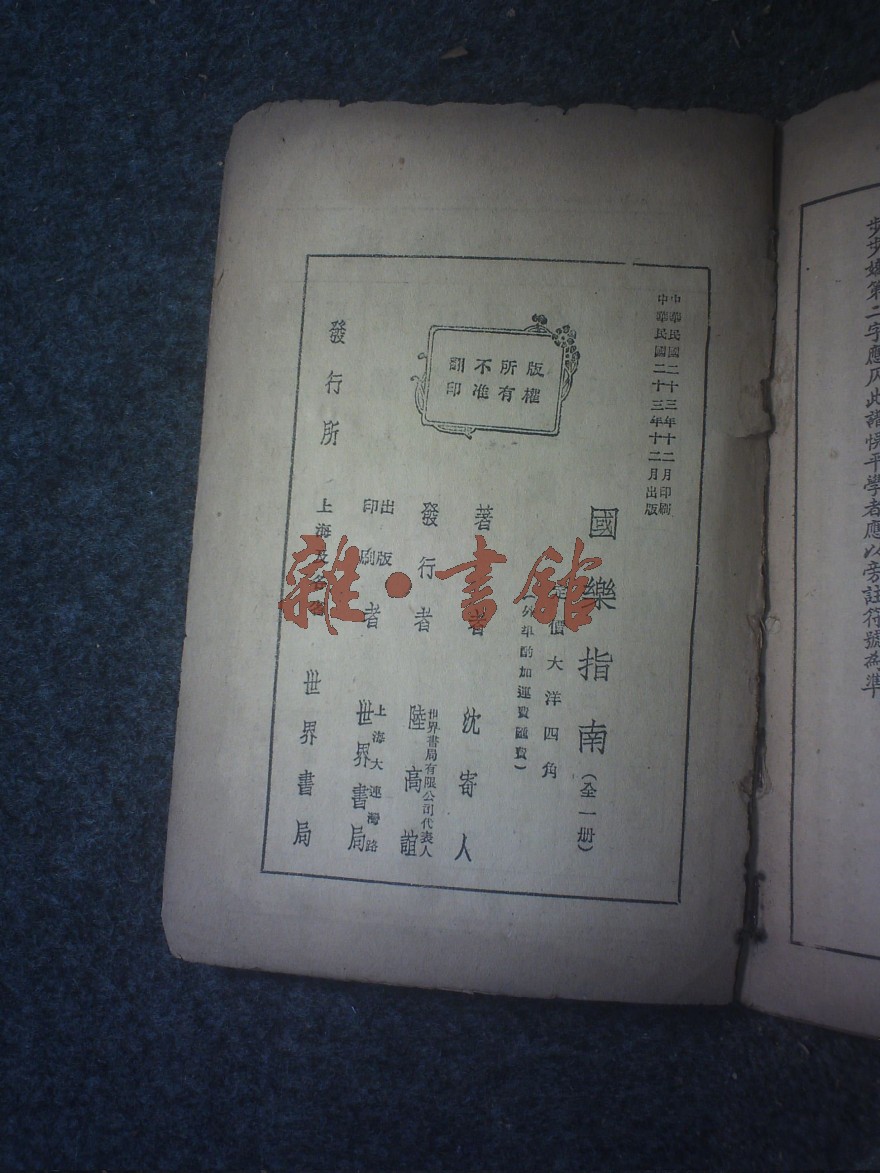 步步嬌第二字應仄此譜悞平學者應以旁註符號為準
中華民國二十三年十二月印刷
中華民國二十三年十二月出版
國樂指南(全一册)
定價大洋四角
外埠酌加運費匯費)
版權
所有
不准
翻印
著者 沈寄人
發行者 世界書局有限公司代表人 陸高誼
出版
印刷者 上海大連灣路 世界書局
發行所 上海及各省 世界書局
雜·書館